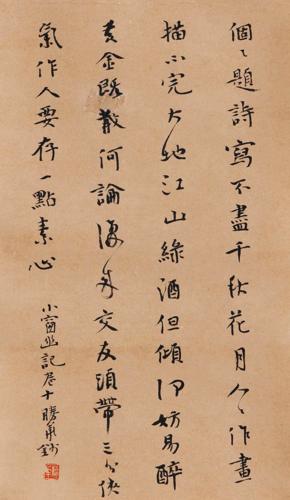 個々題詩寫不盡千秋花月人々作畫
描不完大地江山綠酒但傾何妨易醉
黃金既散何論復來交友須帶三分俠
氣作人要存一點素心
小窗幽記唇十勝軍鈔